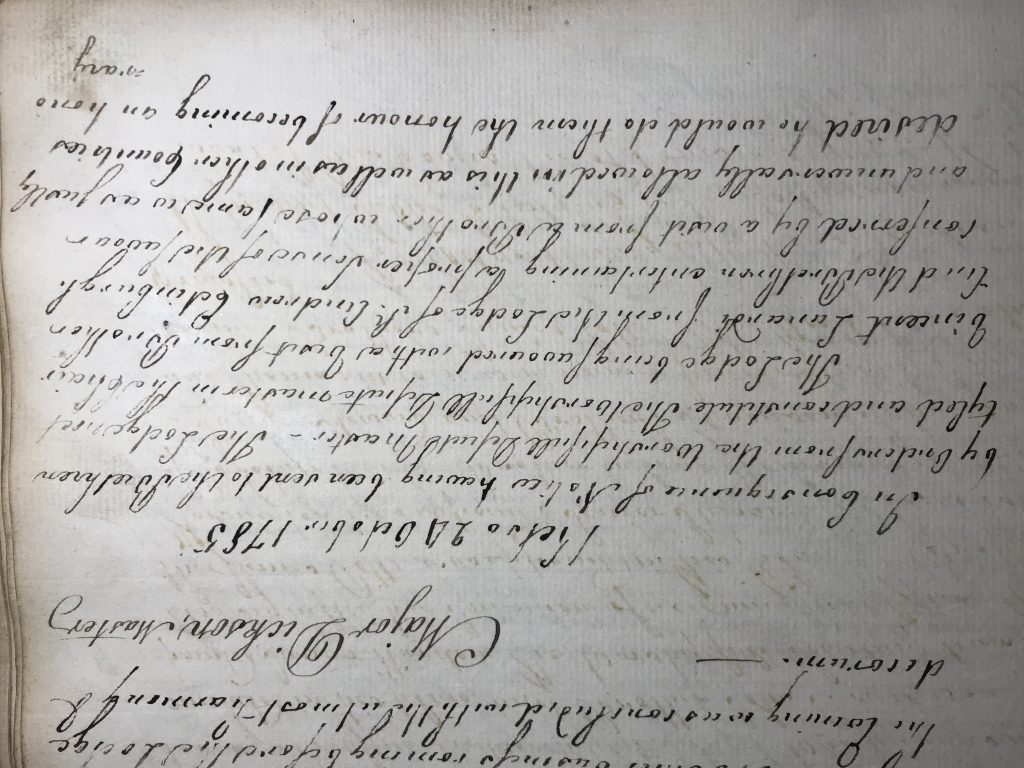 business coming before the Lodge
the Evening was concluded with the utmost harmony &
decorum. —
Major Dickson, Master
Kelso 24 October 1785
In Consequence of Notice having been sent to the Brethren
by Orders from the Worshipfull Depute Master – The Lodge met
tyled and constitute The Worshipfull Depute master in the Chair
The Lodge being favoured with a Visit from Brother
Vincent Lunardi from the Lodge of St. Andrew Edinburgh.
And the Brethren entertaining a proper sense of the favour
conferred by a visit from a Brother whose fame is as justly
and universally allowed in this as well as in other Countries
desired he would do them the honour of becoming an hono
=rary